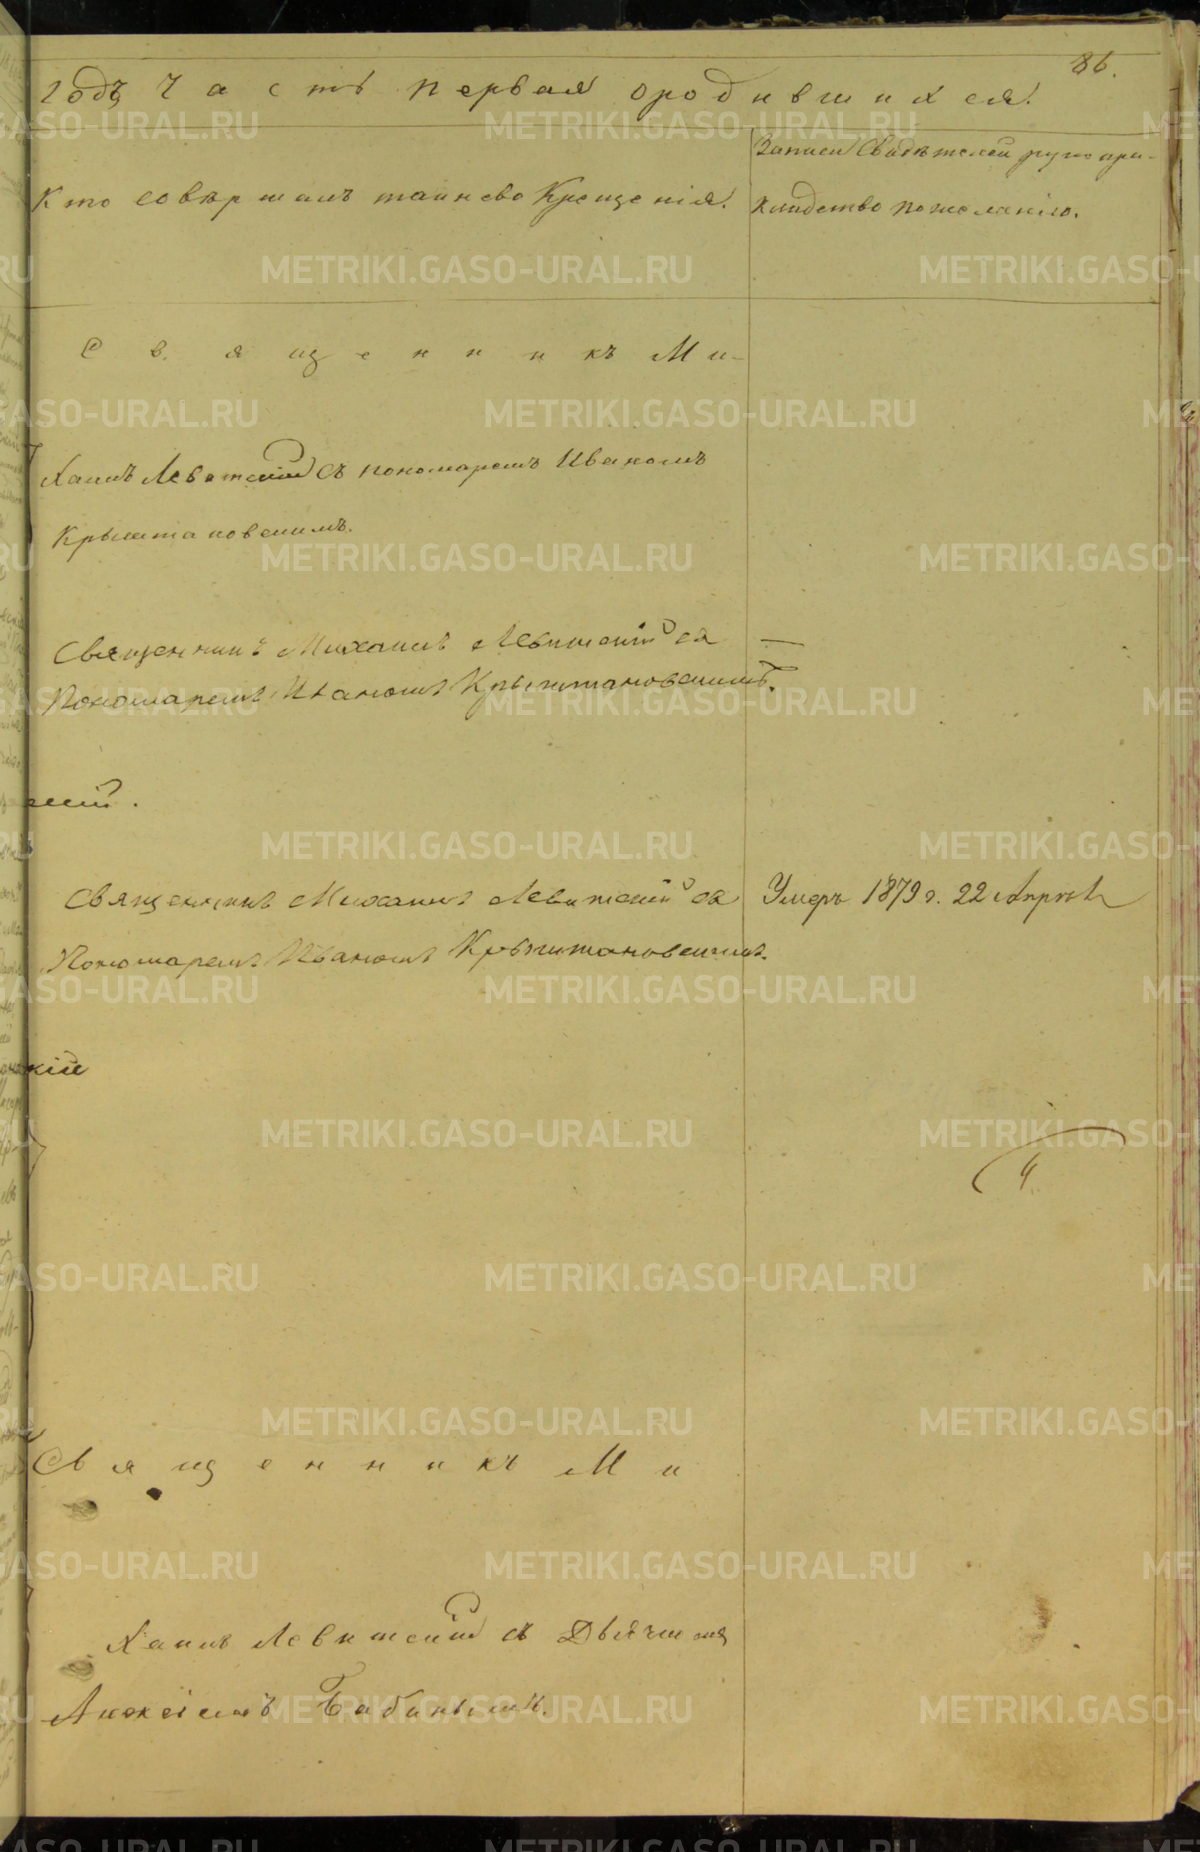 86.
годъ Часть первая о родившихся.
Кто совѣршалъ таинсво Крещенія.
Записи Свидѣтелей рукопри-
кладство по желанію.
Священникъ Ми-
хаилъ Левитскій съ пономаремъ Иваномъ
Крыштановскимъ.
Священникъ Михаилъ Левитскій съ
Пономаремъ Иваномъ Крыштановскимъ.
скій.
Священникъ Михаилъ Левитскій съ
Умеръ 1879 г. 22 Апрѣля
Пономаремъ Иваномъ Крыжтановскимъ.
кій
4
Священникъ Ми
хаилъ Левитскій съ Дьячкомъ
Алексіемъ Бабинымъ.
METRIKI.GASO-URAL.RU